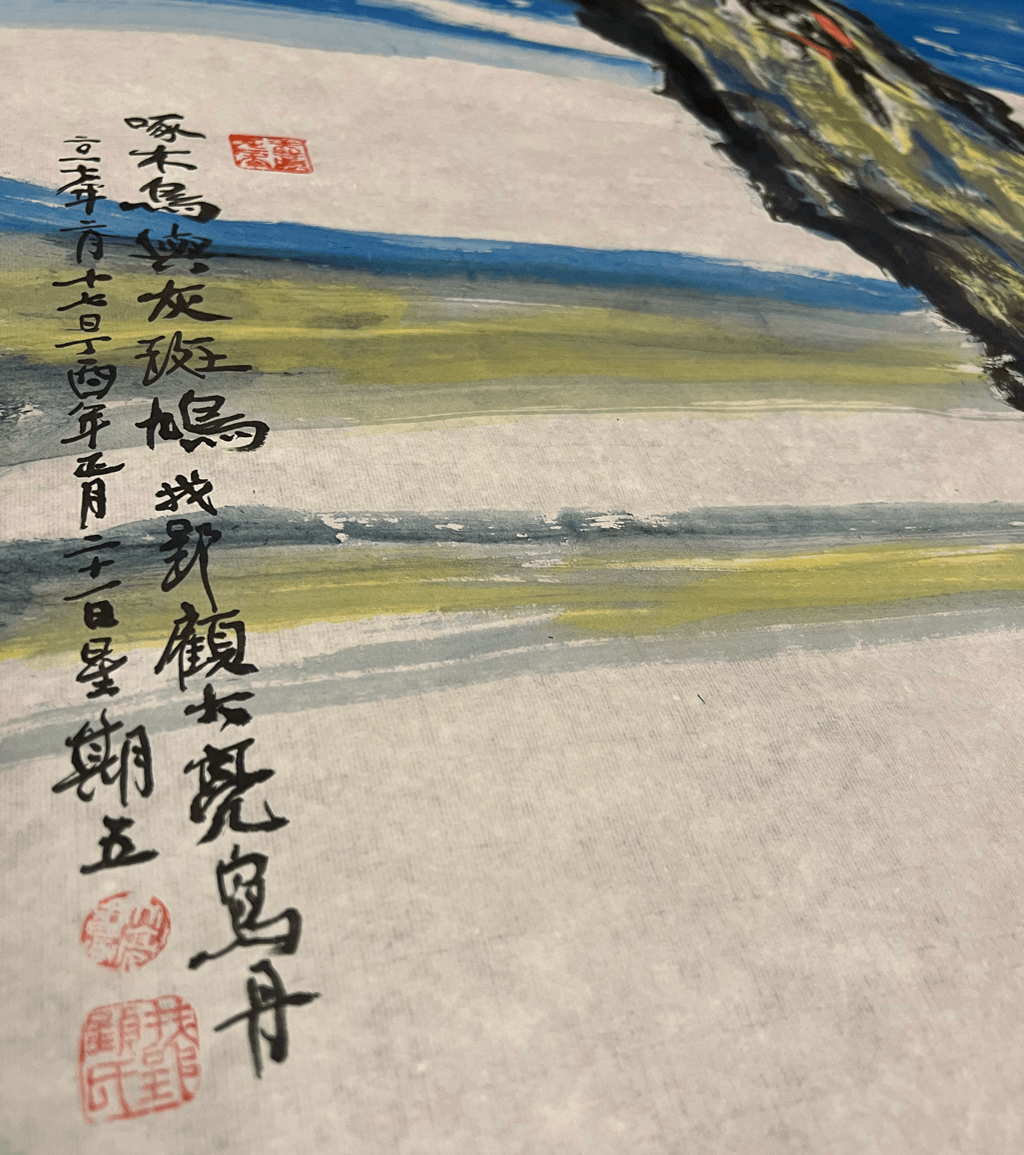 啄木鳥與灰斑鳩 找郢顧大亮寫丹
二〇一七年二月十七日丁酉年正月二十一日星期五